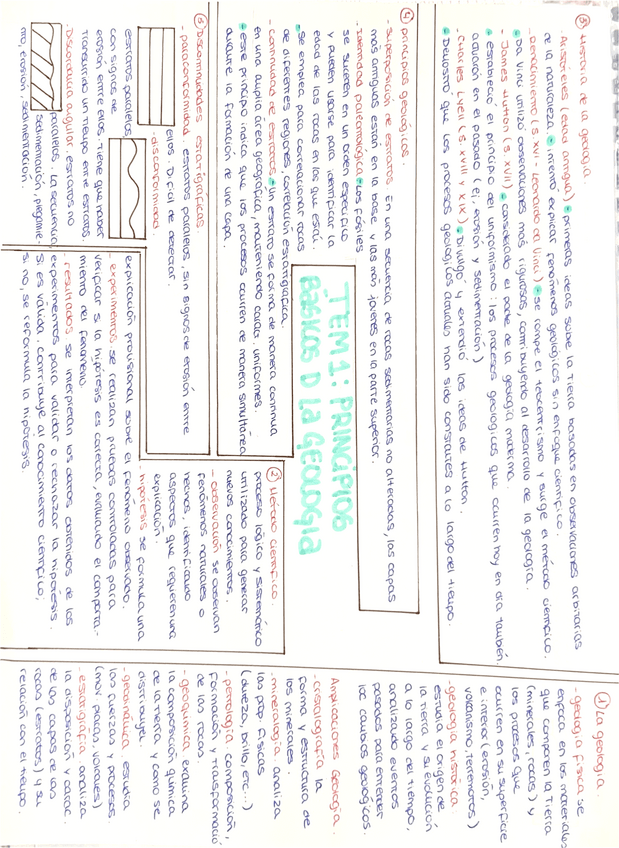 TEM 1: PRINCIPIOS
BASICOS D LA GEOLOGIA
① La geologia.
- geologia fisica se
enfoca en los materiales
que componen la Tierra
(minerales, rocas) y
los procesos que
ocurren en su superficie
e interior (erosión,
volcanismo, terremotos)
- geologia historica
estudia el origen de
la tierra y su evolución
a lo largo del tiempo,
analizando eventos
pasados para entender
los cambios geologicos.
Ampliaciones Geologia.
- cristalografia la
forma y estructura de
los minerales.
- mineralogia. analiza
las prop. fisicas
(dureza, brillo, etc...)
- petrologia. composición,
formación y transformació
de las rocas.
- geoquimica examina
la composición quimica
de la tierra y como se
distribuye.
- geodinámica estudia
las fuerzas y procesos
(mov placas, volcanes)
- estratigrafia analiza
la disposición y carac.
de las capas de las
rocas (estratos) y su
relación con el tiempo.
② Método cientifico.
proceso lógico y sistemático
utilizado para generar
nuevos conocimientos.
- observación se observan
fenómenos naturales o
hechos, identificado
aspectos que requieren una
explicación.
- hipótesis se formula una
explicación provisional sobre el fenómeno observado.
- experimentos se realizan pruebas controladas para
verificar si la hipótesis es correcta, evaluando el comporta-
miento del fenómeno.
- resultados se interpretan los datos obtenidos de los
experimentos para validar o rechazar la hipótesis.
Si es válida, contribuye al conocimiento cientifico;
si no, se reformula la hipótesis
③ Historia de la geologia
- Aristoteles (edad antigua) primeras ideas sobre la Tierra basadas en observaciones arbitrarias
de la naturaleza. intentó explicar fenómenos geológicos sin enfoque cientifico.
- Renacimiento (s. XVI - Leonardo da Vinci) se rompe el teocentrismo y surge el método cientifico.
Da Vinci utilizó observaciones más rigurosas, contribuyendo al desarrollo de la geologia.
- James Hutton (s. XVIII) considerado el padre de la geologia moderna.
estableció el principio del uniformismo: los procesos geologicos que ocurren hoy en dia también
actuaron en el pasado (ej. erosión y sedimentación)
- Charles Lyell (s. XVIII y XIX) Divulgó y extendió las ideas de Hutton.
Demostró que los procesos geológicos actuales han sido constantes a lo largo del tiempo.
④ Principios geológicos.
- Superposición de estratos En una secuencia de rocas sedimentarias no alteradas, las capas
más antiguas están en la base y las más jovenes en la parte superior.
- Identidad paleontologica Los fosiles
se suceden en un orden especifico
y pueden usarse para identificar la
edad de las rocas en las que está.
Se emplea para correlacionar rocas
de diferentes regiones, correlación estratigrafica.
- Continuidad de estratos Un estrato se forma de manera continua
en una amplia área geografica, manteniendo caract. uniformes.
este principio indica que los procesos ocurren de manera simultanea
durante la formación de una capa.
⑤ Discontinuidades estratigráficas.
- paraconformidad estratos paralelos, sin signos de erosión entre
ellos. Dificil de detectar.
- disconformidad.
estratos paralelos
con signos de
erosión entre ellos. tiene que haber
transcurrido un tiempo entre estratos
- Discordancia angular. estratos no
paralelos. La secuencia,
sedimentación, plegamie-
nto, erosión, sedimentación.